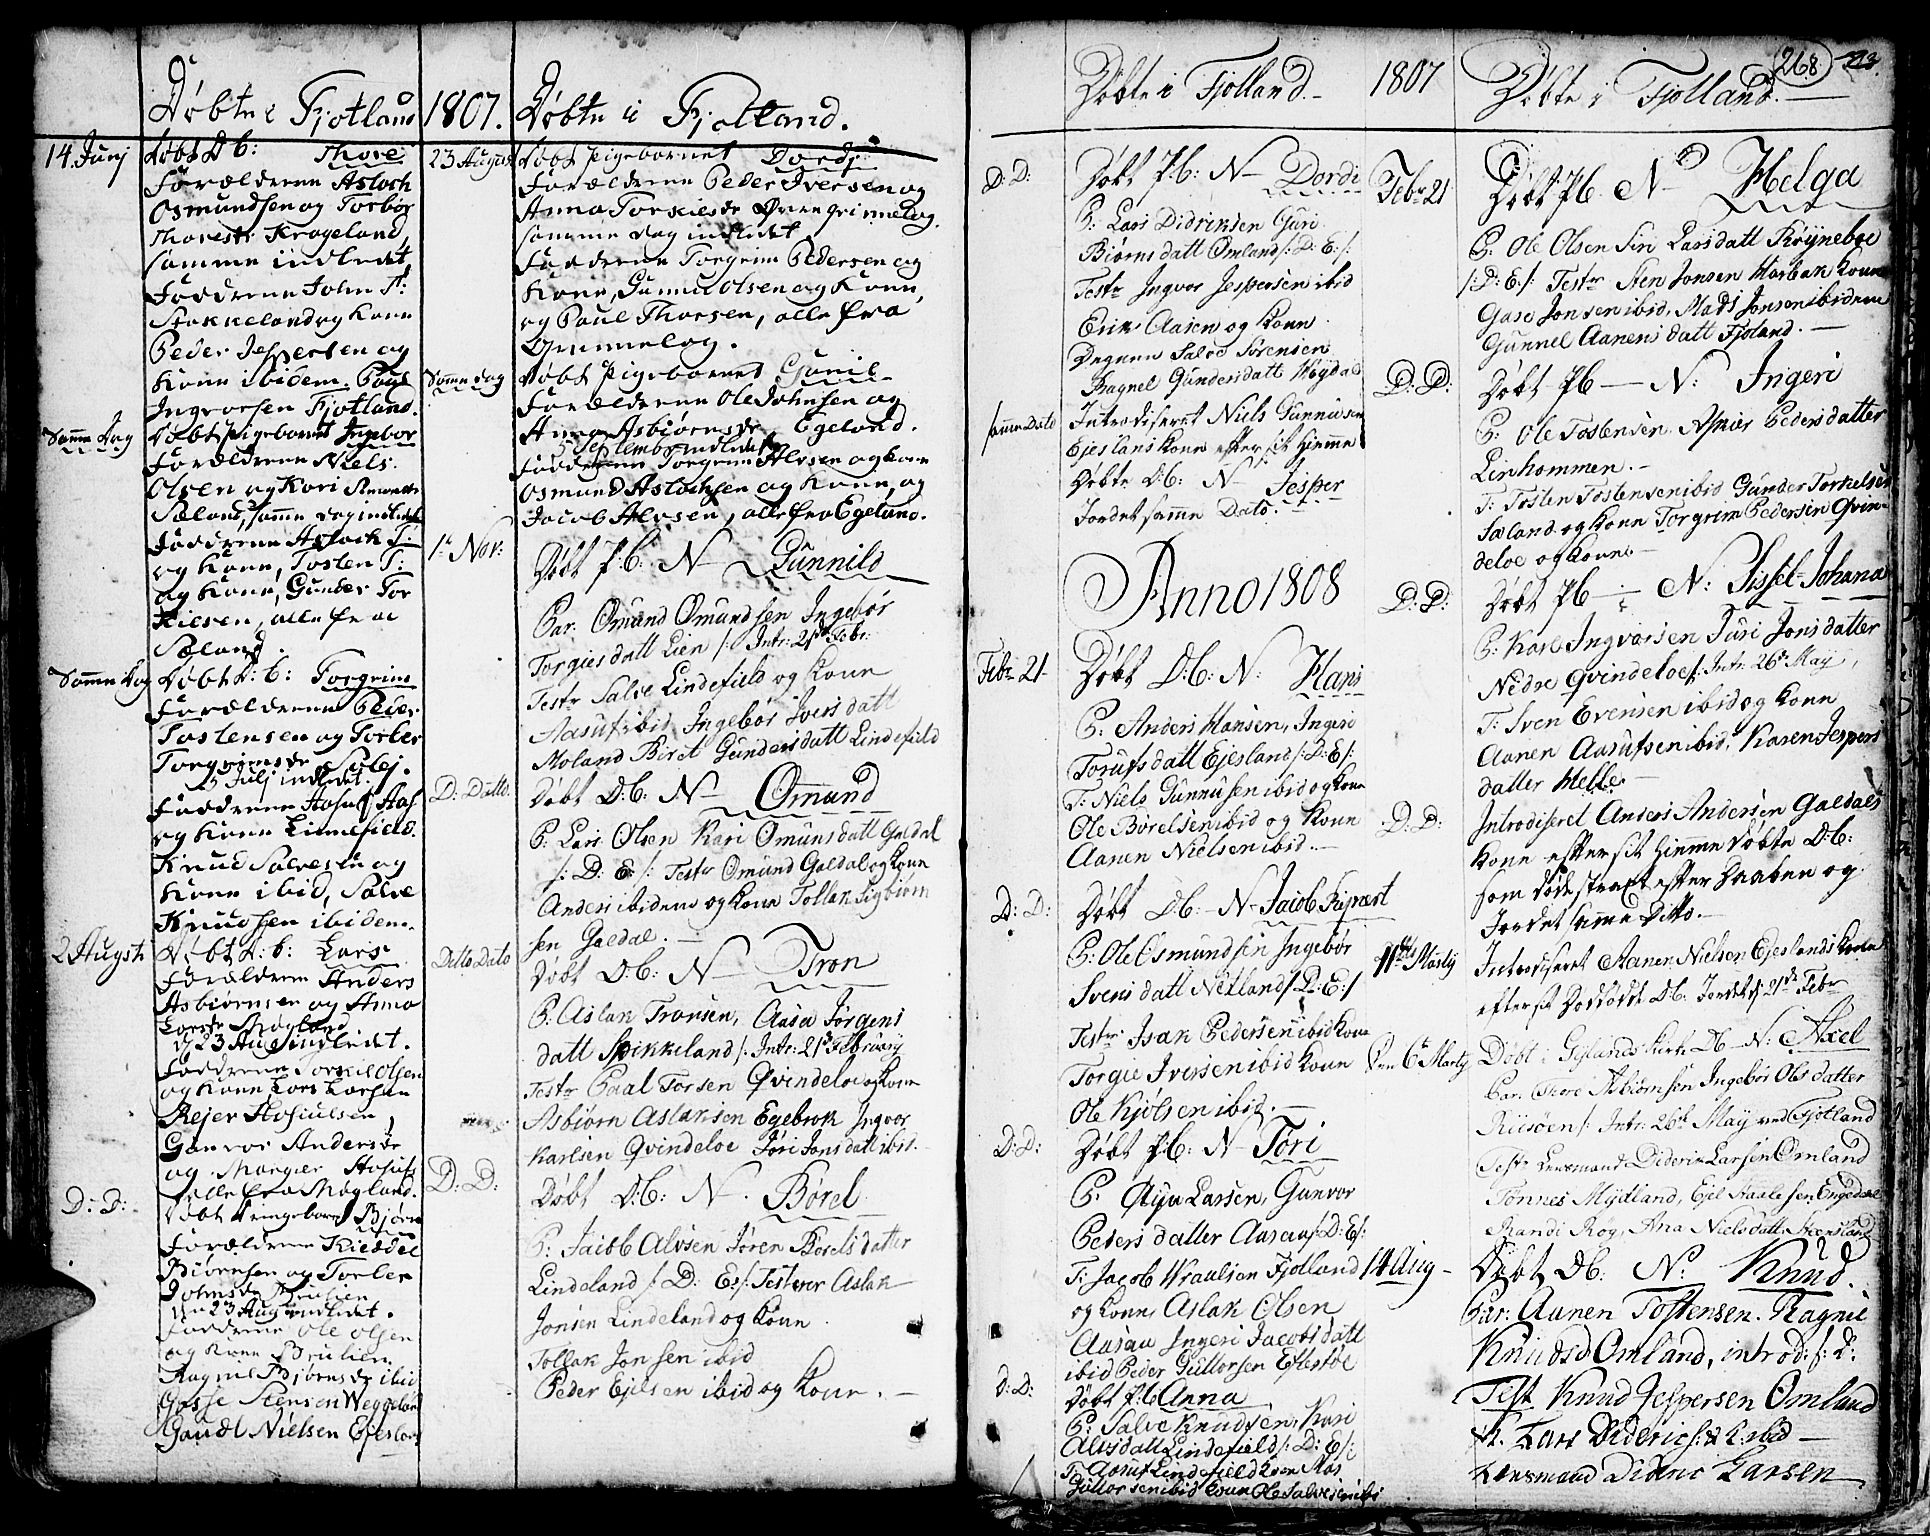 Døbte i Fjotland
14 Junj
Døbt D b: Thore
Forældrene Asloch
Osmundsen og Torbør
Thoresdr Krogeland,
samme indledt,
Fadderne John T:
Stokkeland og Kone
Peder Jespersen og
Kone ibidem. Poul
Ingvorsen Fjotland.
Samme Dag
Døbt Pigebarnet Ingbor
Forældrene Niels
Olsen og Kari
Sæland, samme dag indledt
Fadderne Asloch T:
og Kone, Tosten T:
og Kone, Gunder Tor
Kielsen, alle fra
Sæland.
Samme Dag
Døbt D: b: Torgrim
Forældrene Peder
Tostensen og Torber
Torgrimsdr Sulej.
5 Julj indledt.
Fadderne Aasuf Aas
og Kone Lindefield.
Knud Salvesen og
Kone ibid, Salve
Knudsen ibidem.
2 Augsti
Døbt D: b: Lars
Forældrene Anders
Asbiørnsen og Anna
Larsdr Møgland
d 23 Aug indledt.
Fadderne Torkil Olsen
og Kone, Lars Larsen
Rejer Aasiulsen,
Gunvor Andersdr
og Margier Aasufs
alle fra Møgland.
D: D:
Døbt Drengebarn Biørn
Forældrene Kieddel
Biørnsen og Torber
Johnsdr Brulien
den 23 Aug indledt.
Fadderne Ole Olsen
og Kone Brulien.
Ragnil Biørnsdr ibid
Gosse Stensen Weggeland
Gaudl Nielsen Ejesland
1807.
Døbte i Fjotland.
23 August
Døbt Pigebarnet Dordj
Forældrene Peder Iversen og
Anna Torkielsdr Øvre grimmelog.
samme dag indledt
Fadderne Torgrim Pedersen og
Kone, Gunnu Olsen og Kone,
og Paul Thorsen, alle fra
Grimmelog.
Samme dag
Døbt Pigebarnet Gunil
Forældrene Ole Johnsen og
Anna Asbiørnsdr, Egeland.
5 Septembr indledt
Fadderne Torgrim Alvsen og Kone
Osmund Aslochsen og Kone, og
Jacob Alvsen, alle fra Egeland.
1: Nov:
Døbt P: b: N Gunnild
Par. Omund Omundsen Ingebør
Torgiesdatt Lien /: Intr: 21de Febr:
Testr Salve Lindefield og Kone
Aasuf ibid Ingebør Iversdatt
Moland Biret Gundersdatt Lindefield
D: Datto.
Døbt D: b: N Omund
P: Lars Olsen Kari Omunsdatt Galdal
/: D: E: /: Testr Omund Galdal og Kone
Anders ibidem og Kone Tollak Sigbiørn
sen Galdal. —
Ditto Dato
Døbt D: b: N Tron
P: Aslan Tronsen, Aasa Jørgens
datt Stikkeland /: Intr: 21de Februarij
Testr Paal Torsen Qvindeloe og Kone
Asbiørn Aslaksen Egebrok Ingvor
Karlsen Qvindeloe Jøri Jonsdatt ibid.
D: D:
Døbt D: b: N. Børel
P: Jacob Alvsen Jøren Børelsdatter
Lindeland /: D: E: /: Testr Iver Aslak
Jonsen Lindeland og Kone
Tollak Jonsen ibid
Peder Ejelsen ibid og Kone. —
Døbte i Fjotland. —
D: D:
Døbt P: b: N — Dordi
P: Lars Didriksen Guri
Biørnsdatt Omland /: D: E: /:
Testr Ingvor Jespersen ibid
Erik Aasen og Kone
Degnen Saloe Sørensen
Ragnel Gundersdatt Mygdal
samme Dato
Introdiseret Niels Gunnusen
Ejeslans Kone efter sit Hiemme
Døbte D: b: N Jesper
Jordet samme Dato. —
Anno 1808
Febr 21
Døbt D: b: N: Hans
P: Anders Hansen, Ingeri
Torufsdatt Ejesland /: D: E: /:
T: Niels Gunnusen ibid og Kone
Ole Børelsen ibid og Kone
Aanen Nielsen ibid. —
D: D:
Døbt D: b: — N Jacob Kipnest
P: Ole Osmundsen Ingebør
Svensdatt Netland /: D: E: /
Testr Isak Pedersen ibid Kone
Torgie Iversen ibid Kone
Ole Kjølsen ibid. —
D: D:
Døbt P: b: N Tori
P. Larsen, Gunvor
Pedersdatter Aasau /: D: E: /:
T: Jacob Vraalsen Fjotland
og Kone, Aslak Olsen
Aasau Ingeri Jacobsdatt
ibid Peder Guttorsen Eftestøl
D: D:
Døbt P: b Anna
P: Salve Knudsen, Kari
Alvsdatt Lindefield /: D: E: /:
T: Aasuf Lindefield Kone Mos
Guttorsen ibid Kone Ole Salvesen ibid
1807
Døbte i Fjotland. —
268
Febr 21
Døbt P b. N Helga
P: Ole Olsen Siri Larsdatt Røyneboe
/: D: E: /: Testr Sten Jonsen Haabak Kone
Gase Jonsen ibid, Mads Jonsen ibidem
Gunnel Aanensdatt Fjotland. —
D: D:
Døbt P b — N: Ingeri
P: Ole Tostensen, Asmer Pedersdatter
Linhommen. —
T: Tosten Tostensen ibid Gunder Torkelsen
Sæland og Kone Torgrem Pedersen Qvin-
deloe og Kone —
D: D:
Døbt P b — N: Sissel-Johana
P: Karl Ingvorsen Juri Jonsdatter
Nedre Qvindeloe /: Intr: 26de Maij,
T: Sven Evensen ibid og Kone
Aanen Aasufsen ibid, Karen Jespers
datter Melle —
D: D:
Introdiseret Anders Andersen Galdals
Kone efter sit hiemme døbte D: b:
som døde straxt efter Daaben og
Jordet samme Ditto. —
11te Martij
Introdiseret Aanen Nielsen Ejeslands Kone
efter sit Dødfødte D b. Jordet d: 21de Febr
Den 6te Martij
Døbt i Gylands Kirke D b — N: Axel
Par. Tore Asbiørnsen Ingebør Olsdatter
Riisøen /: Intr: 26de Maij ved Fjotland
Testr Lensmand Diderik Larsen Omland
Tønnes Mydland, Ejel Staalesen Engedal
Randi Røy, Ana Nielsdatter
14 Aug —
Døbt D b: N: Knud.
Par: Aanen Tostensen. Ragnil
Knudsd Omland, introd: /: d:
Test Knud Jespersen Omland
K. Lars Diderichs: K ibid —
Lensmand Dideric Larsen